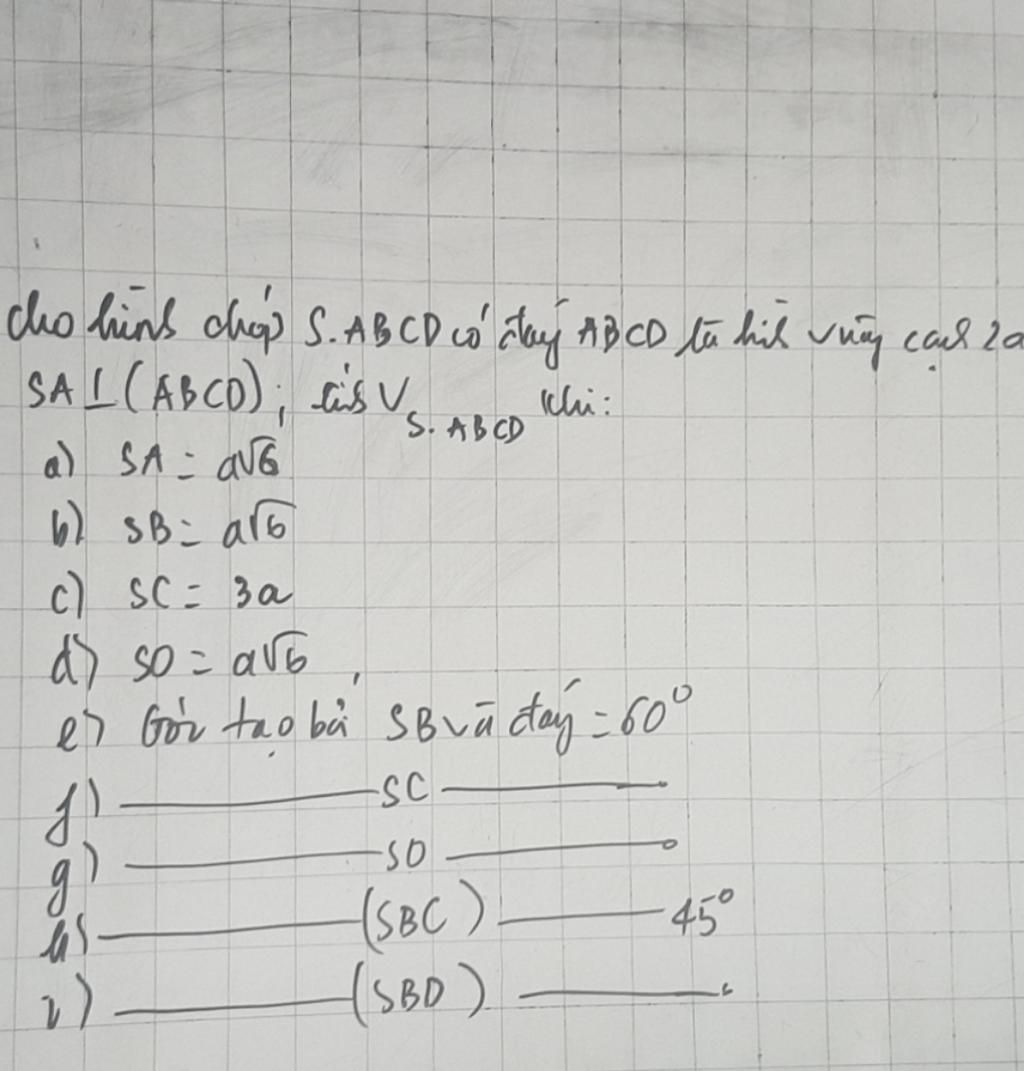 Cho hình chóp S.ABCD có đáy ABCD là hình vuông cạnh 2a
SA⊥(ABCD); tính V_{S.ABCD} khi:
a) SA = a√6
b) SB = a√6
c) SC = 3a
d) SO = a√6
e) Góc tạo bởi SB và đáy = 60⁰
f) ——— SC ———
g) ——— SO ———
h) ——— (SBC) ——— 45⁰
i) ——— (SBD) ———